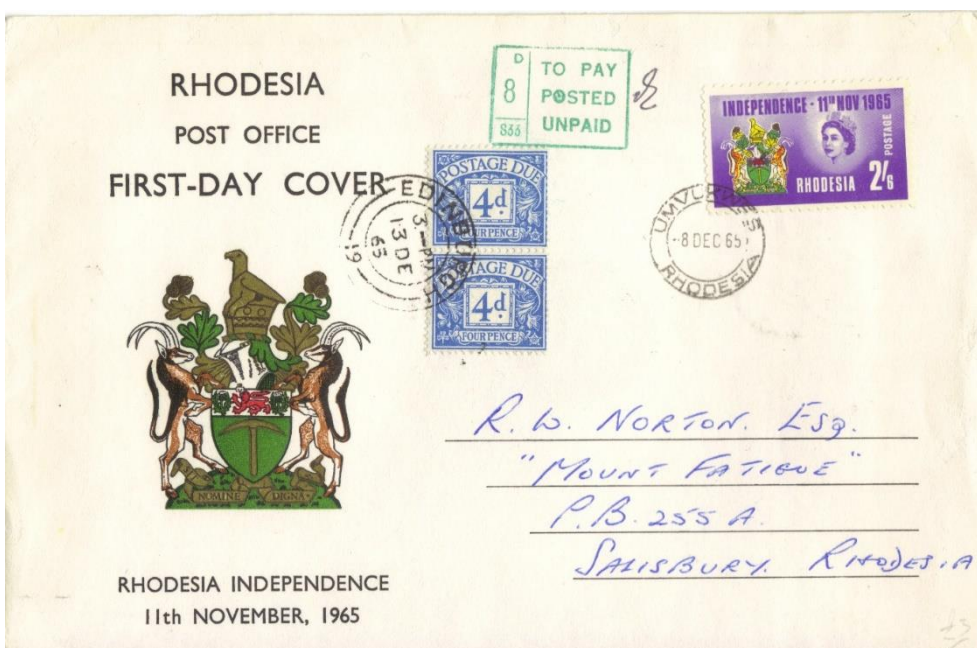 RHODESIA
POST OFFICE
FIRST-DAY COVER
D
8
833
TO PAY
POSTED
UNPAID
INDEPENDENCE · 11TH NOV 1965
POSTAGE
RHODESIA 2/6
UMVUKWES
-8 DEC 65
RHODESIA
POSTAGE DUE
4d
FOUR PENCE
POSTAGE DUE
4d
FOUR PENCE
EDINBURGH
3-PM
13 DE
65
19
NOMINE DIGNA
R. W. NORTON. ESQ.
"MOUNT FATIGUE"
P.B. 255 A.
SALISBURY. RHODESIA
RHODESIA INDEPENDENCE
11th NOVEMBER, 1965